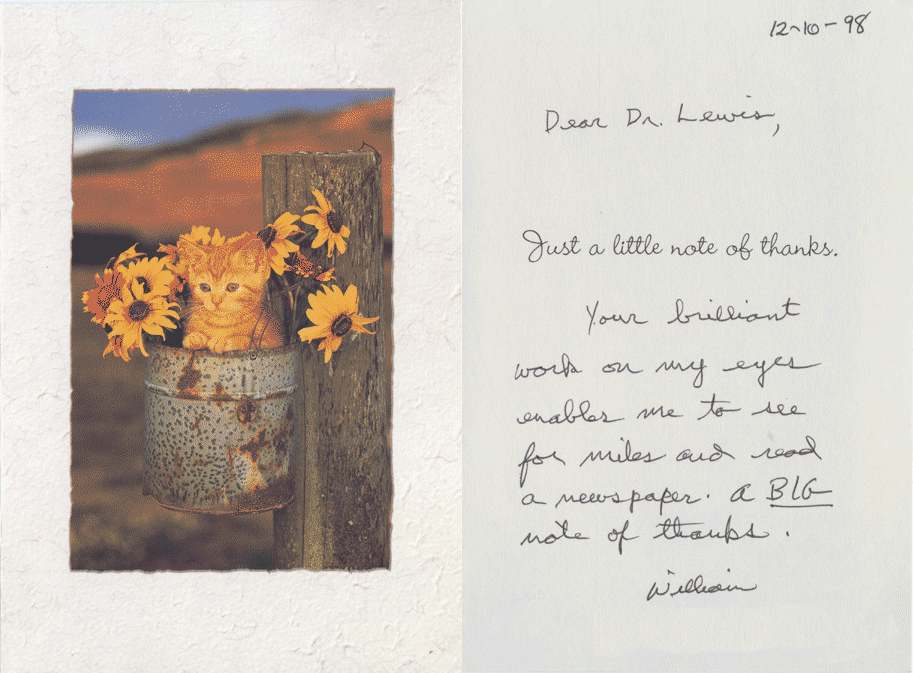 12-10-98
Dear Dr. Lewis,
Just a little note of thanks.
Your brilliant
work on my eyes
enables me to see
for miles and read
a newspaper. A BIG
note of thanks.
William